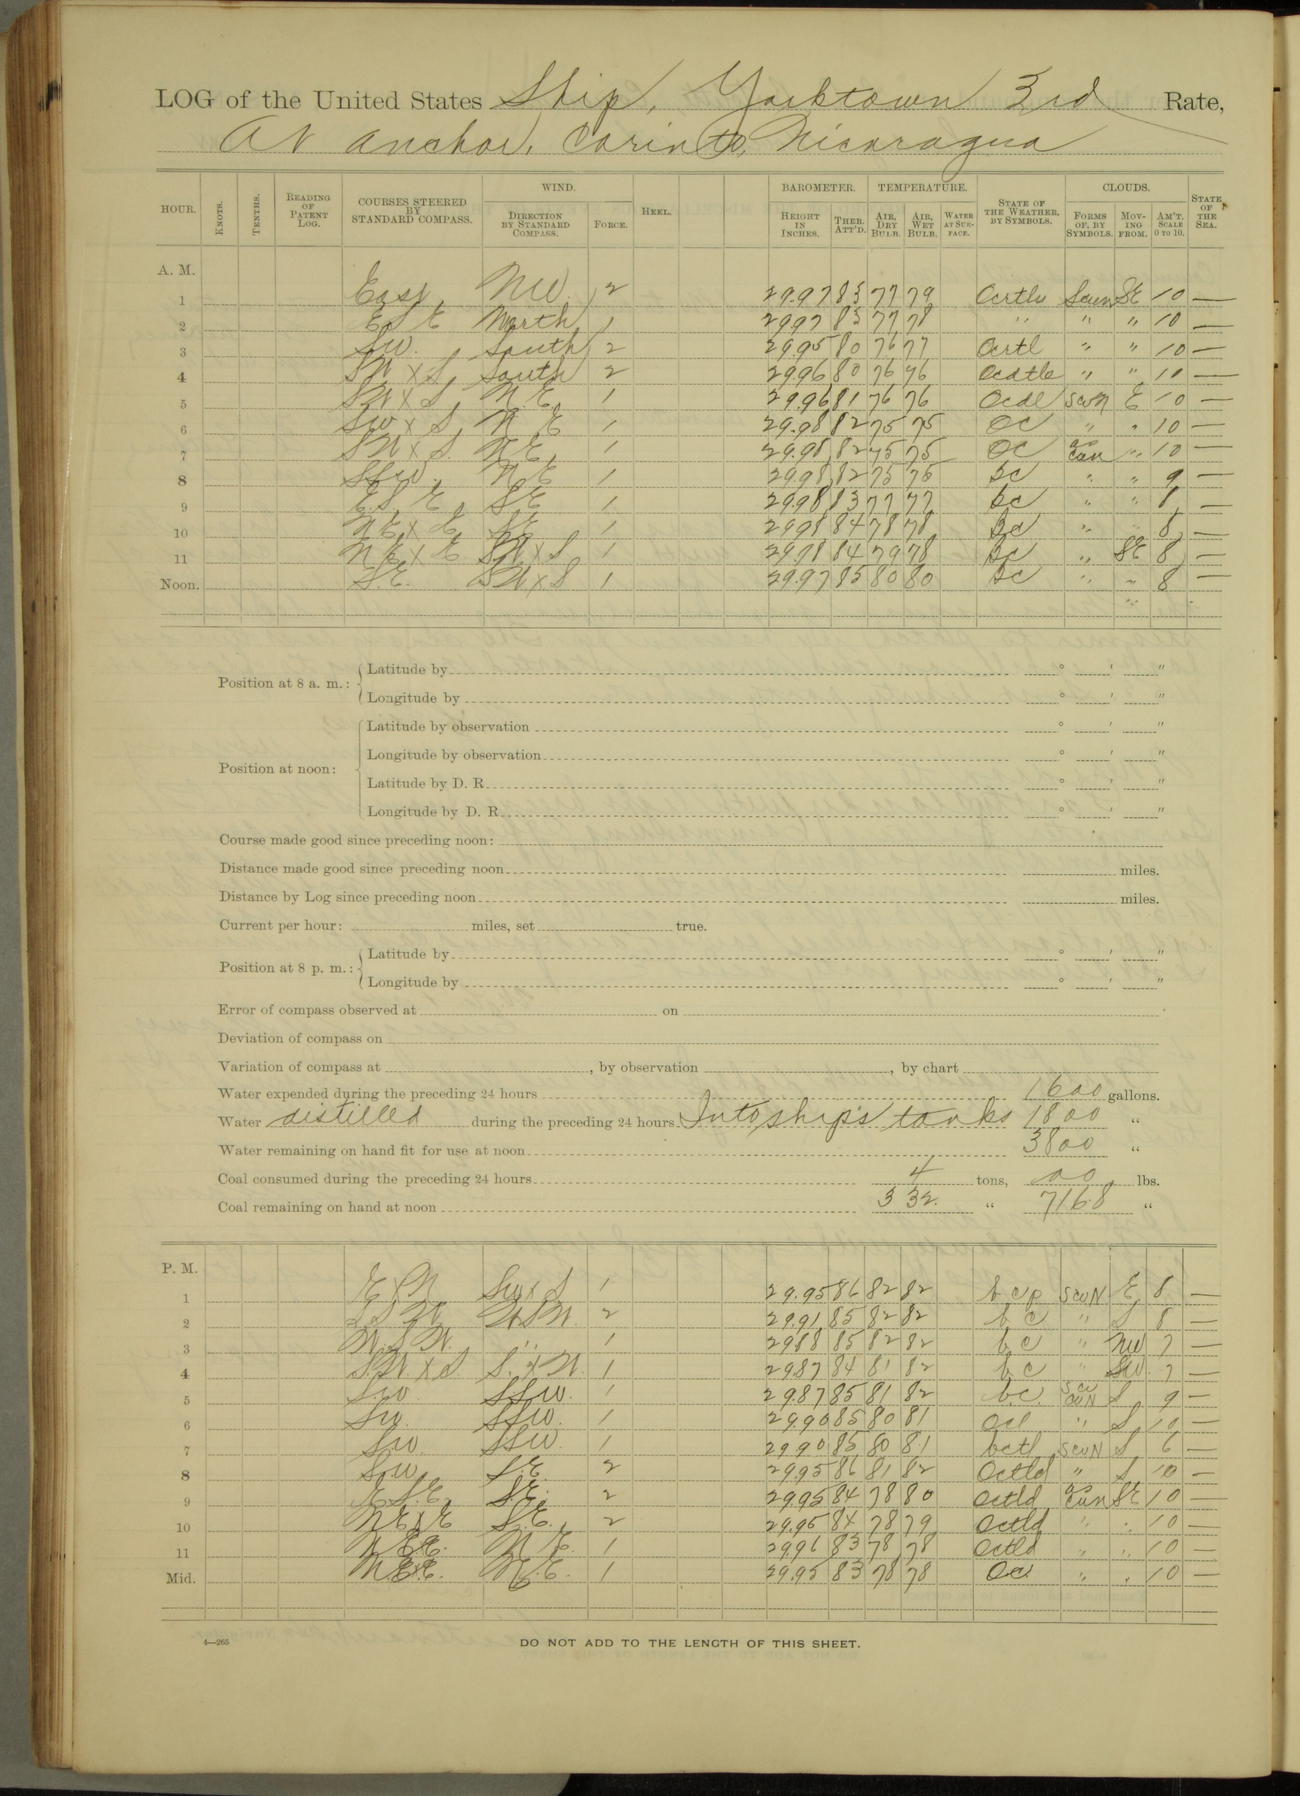 LOG of the United States Ship, Yorktown 3rd Rate,
At anchor, Corinto, Nicaragua
HOUR. KNOTS. TENTHS. READING OF PATENT LOG. COURSES STEERED BY STANDARD COMPASS. WIND. DIRECTION BY STANDARD COMPASS. FORCE. HEEL. BAROMETER. HEIGHT IN INCHES. THER. ATT'D. TEMPERATURE. AIR, DRY BULB. AIR, WET BULB. WATER AT SURFACE. STATE OF THE WEATHER, BY SYMBOLS. CLOUDS. FORMS OF, BY SYMBOLS. MOVING FROM. AM'T. SCALE 0 TO 10. STATE OF THE SEA.
A. M.
1 East NW 2 29.97 83 77 79 SE 10 —
2 ESE North 1 29.97 83 77 78 " " " 10 —
3 SW. South 2 29.95 80 76 77 " " 10 —
4 SW x S. South 2 29.96 80 76 76 " " 10 —
5 SW x S. N.E. 1 29.96 81 76 76 E 10 —
6 SW x S. N E 1 29.98 82 75 75 OC " " 10 —
7 SW x S. N.E. 1 29.98 82 75 75 OC " 10 —
8 SSW. N.E 1 29.98 82 75 75 bc " " 9 —
9 E.S.E. SE 1 29.98 83 77 77 bc " " 8 —
10 NE x E SE 1 29.98 84 78 78 bc " 8 —
11 NE x E SW x S 1 29.98 84 79 78 bc " SE 8 —
Noon. SE. SW x S 1 29.97 85 80 80 bc " " 8 —
Position at 8 a. m.: Latitude by ° ′ ″
Longitude by ° ′ ″
Latitude by observation ° ′ ″
Longitude by observation ° ′ ″
Position at noon:
Latitude by D. R. ° ′ ″
Longitude by D. R. ° ′ ″
Course made good since preceding noon:
Distance made good since preceding noon miles.
Distance by Log since preceding noon miles.
Current per hour: miles, set true.
Position at 8 p. m.: Latitude by ° ′ ″
Longitude by ° ′ ″
Error of compass observed at on
Deviation of compass on
Variation of compass at , by observation , by chart
Water expended during the preceding 24 hours 1600 gallons.
Water distilled during the preceding 24 hours Into ship's tanks 1800 "
Water remaining on hand fit for use at noon 3800 "
Coal consumed during the preceding 24 hours 4 tons, 00 lbs.
Coal remaining on hand at noon 332 " 716.8 "
P. M.
1 E x N SW x S 1 29.95 86 82 82 bcp SCuN E 8 —
2 WSW. 2 29.91 85 82 82 bc " S 8 —
3 W.S.W. " 1 29.88 85 82 82 bc " NW 7 —
4 SW x S S. x W. 1 29.87 84 81 82 bc " SW. 7 —
5 SW SSW. 1 29.87 85 81 82 bc. S 9 —
6 SW. SSW. 1 29.90 85 80 81 " S 10 —
7 SW. SSW. 1 29.90 85 80 81 bctl SCuN S 6 —
8 SW S.E. 2 29.95 86 81 82 Octld " S 10 —
9 E.S.E. S.E. 2 29.95 84 78 80 Octld SE 10 —
10 NE x E S.E. 2 29.95 84 78 79 Octld " " 10 —
11 N.E. 1 29.96 83 78 78 Octld " " 10 —
Mid. N.E. 1 29.95 83 78 78 Oc. " " 10 —
4—265
DO NOT ADD TO THE LENGTH OF THIS SHEET.